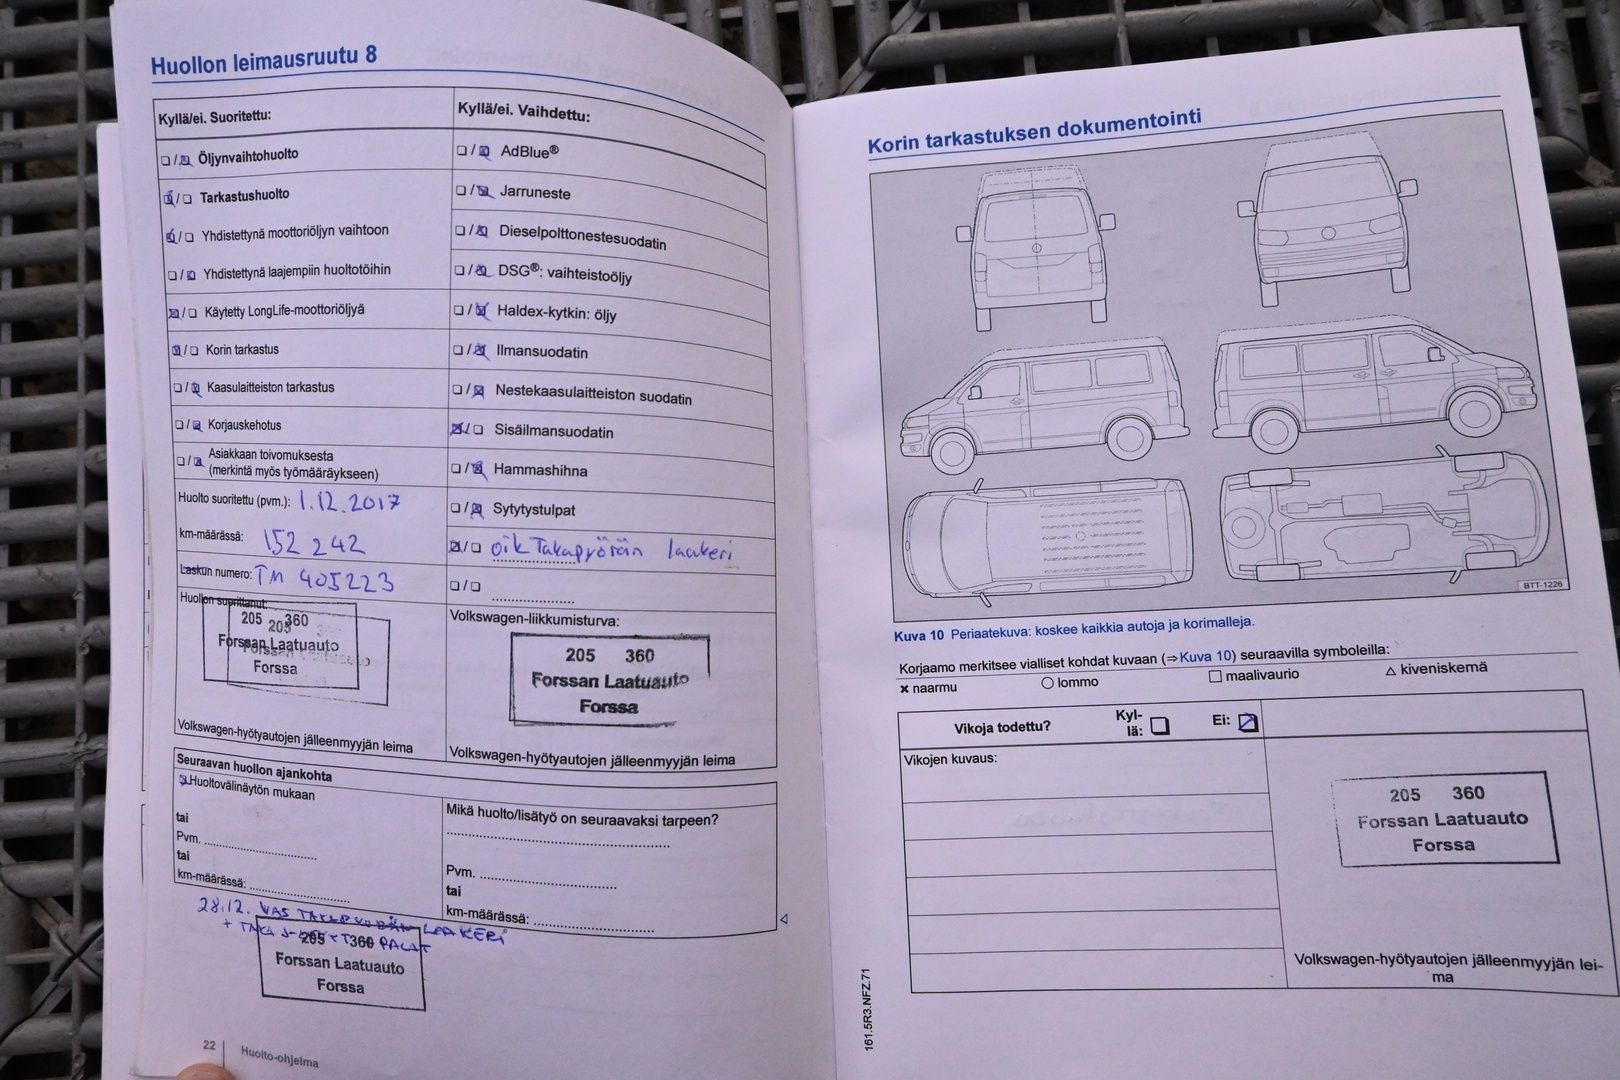 Huollon leimausruutu 8
Kyllä/ei. Suoritettu:
Öljynvaihtohuolto
Tarkastushuolto
Yhdistettynä moottoriöljyn vaihtoon
Yhdistettynä laajempiin huoltotöihin
Käytetty LongLife-moottoriöljyä
Korin tarkastus
Kaasulaitteiston tarkastus
Korjauskehotus
Asiakkaan toivomuksesta
(merkintä myös työmääräykseen)
Huolto suoritettu (pvm.): 1.12.2017
km-määrässä: 152 242
Laskun numero: TM 405223
Huollon suorittanut:
205 360
Forssan Laatuauto
Forssa
Volkswagen-hyötyautojen jälleenmyyjän leima
Kyllä/ei. Vaihdettu:
AdBlue®
Jarruneste
Dieselpolttonestesuodatin
DSG®: vaihteistoöljy
Haldex-kytkin: öljy
Ilmansuodatin
Nestekaasulaitteiston suodatin
Sisäilmansuodatin
Hammashihna
Sytytystulpat
oik Takapyörän laakeri
Volkswagen-liikkumisturva:
205 360
Forssan Laatuauto
Forssa
Volkswagen-hyötyautojen jälleenmyyjän leima
Seuraavan huollon ajankohta
Huoltovälinäytön mukaan
tai
Pvm.
tai
km-määrässä:
Mikä huolto/lisätyö on seuraavaksi tarpeen?
Pvm.
tai
km-määrässä:
28.12. VAS TAKAPYÖRÄN LAAKERI
+ TAKA PALAT
205 360
Forssan Laatuauto
Forssa
22 Huolto-ohjelma
Korin tarkastuksen dokumentointi
BTT-1226
Kuva 10 Periaatekuva: koskee kaikkia autoja ja korimalleja.
Korjaamo merkitsee vialliset kohdat kuvaan (⇒ Kuva 10) seuraavilla symboleilla:
× naarmu ○ lommo □ maalivaurio △ kiveniskemä
Vikoja todettu? Kyl-
lä: Ei:
Vikojen kuvaus:
205 360
Forssan Laatuauto
Forssa
Volkswagen-hyötyautojen jälleenmyyjän lei-
ma
161.5R3.NFZ.71